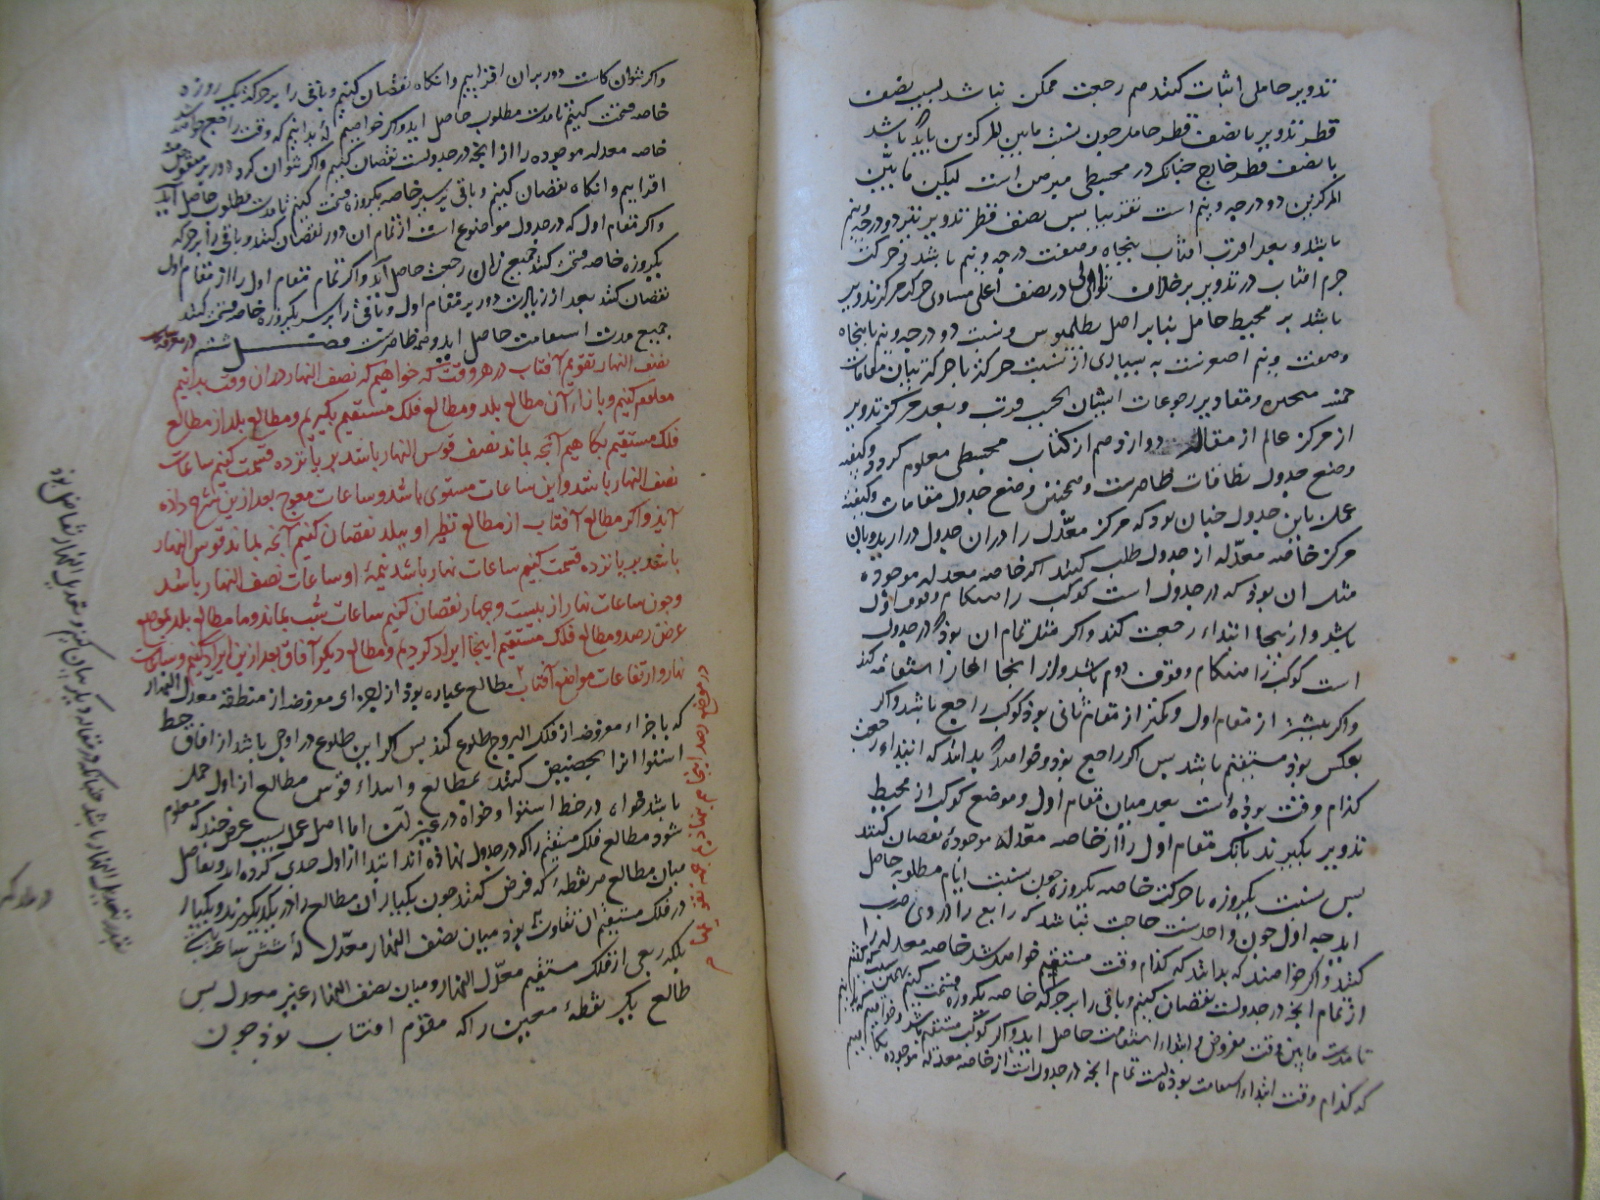 تدویر حاملی اثبات کنند هم رجعت ممکن نباشد بسبب نصف
قطر تدویر با نصف قطر حامل چون نسبت ما بین المرکزین باید باشد
با نصف قطر خارج چنانک در محیطی مبرهن است لیکن ما بین
المرکزین دو درجه و نیم است تقریبا پس نصف قطر تدویر نیز دو درجه و نیم
باشد و بعد اقرب افتاب پنجاه و هفت درجه و نیم باشد و حرکت
جرم افتاب در تدویر بر خلاف توالی در نصف اعلی مساوی حرکت مرکز تدویر
باشد بر محیط حامل بنابر اصل بطلمیوس و نسبت دو درجه و نیم با پنجاه
و هفت و نیم اصغرست به بسیاری از نسبت حرکت با حرکت بیان مقامات
خمسه متحیره و مقادیر رجوعات ایشان بحسب قرب و بعد مرکز تدویر
از مرکز عالم از مقالت دوازدهم از کتاب محیطی معلوم کردد و کیفیت
وضع جدول نطاقات ظاهرست و همچنین وضع جدول مقامات و کیفیت
عمل باین جدول چنان بود که مرکز معدّل را در ان جدول درارید و بان
مرکز خاصه معدّله از جدول طلب کنند اکر خاصه معدله موجوده
مثل ان بود که در جدول است کوکب را هنکام وقوف اول
باشد و از بنجا ابتداء رجعت کند و اکر مثل تمام ان بود که در جدول
است کوکب را هنکام وقوف دوم باشد و از انجا اغاز استقامه کند
و اکر بیشتر از مقام اول و کمتر از مقام ثانی بود کوکب راجع باشد و اکر
بعکس بود مستقیم باشد پس اکر راجع بود و خواهند بدانند که ابتداء رجعت
کدام وقت بوده است بعد میان مقام اول و موضع کوکب از محیط
تدویر بکیرند بانک مقام اول را از خاصه معدّله موجوده نقصان کنند
پس نسبت یکروزه با حرکت خاصه یکروزه چون نسبت ایام مطلوبه حاصل
اید چه اول چون واحدست حاجت نباشد که رابع را در وی ضرب
کنند و اکر خواهند که بدانند که کدام وقت مستقیم خواهد شد خاصه معدله را
از تمام انچه در جدولست نقصان کنیم و باقی را بر حرکه خاصه یکروزه قسمت کنیم
تا مدت ما بین وقت مفروض و ابتداء استقامت حاصل اید و اکر کوکب مستقیم باشد و خواهیم که بدانیم
که کدام وقت ابتداء استقامت بوده است تمام انچه در جدولست از خاصه معدله موجوده بکاهیم
و اکر نتوان کاست دور بران افزاییم و انکاه نقصان کنیم و باقی را بر حرکه یکروزه
خاصه قسمت کنیم تا مدت مطلوب حاصل اید و اکر خواهیم که بدانیم که وقت راجع خواهد شد
خاصه معدله موجوده را از انچه در جدولست نقصان کنیم و اکر نتوان کرد دور بر
افزاییم و انکاه نقصان کنیم و باقی بر سیر خاصه یکروزه قسمت کنیم تا مدت مطلوب حاصل اید
و اکر مقام اول که در جدول موضوع است از تمام ان دور نقصان کنند و باقی را بر حرکه
یکروزه خاصه قسمت کنند جمیع زمان رجعت حاصل آید و اکر تمام مقام اول را از مقام اول
نقصان کنند بعد از زیادت دور بر مقام اول و باقی را بر سیر یکروزه خاصه قسمت کنند
جمیع مدت استقامت حاصل اید و همه ظاهرست فصل ششم در معرفت
نصف النهار تقویم آفتاب در هر وقت که خواهیم که نصف النهار دران وقت بدانیم
معلوم کنیم و بازاء آن مطالع بلد و مطالع فلک مستقیم بکیریم و مطالع بلد از مطالع
فلک مستقیم بکاهیم آنچه بماند نصف قوس النهار باشد بر پانزده قسمت کنیم ساعات
نصف النهار باشد و این ساعات مستوی باشد و ساعات معوج بعد ازین شرح داده
آید و اکر مطالع آفتاب از مطالع نظیر او ببلد نقصان کنیم آنچه بماند قوس النهار
باشد بر پانزده قسمت کنیم ساعات نهار باشد نیمهٔ او ساعات نصف النهار باشد
و چون ساعات نهار از بیست و چهار نقصان کنیم ساعات شب بماند و ما مطالع بلد بموضع
عرض رصد و مطالع فلک مستقیم اینجا ایراد کردیم و مطالع دیکر آفاق بعد ازین ایراد کنیم و ساعات
نهار و ارتفاعات مواضع آفتاب مطالع عباره بود از اجزاءی مفروضه از منطقه معدل النهار
که با اجزاء مفروضه از فلک البروج طلوع کند پس اکر این طلوع در اول باشد از افاق خط
استوا انرا تخصیص کنند بمطالع و ابتداء قوس مطالع از اول حمل
باشد خواه در خط استوا و خواه در غیر آن اما اصل عمل بسبب غرض چند که معلوم
شود مطالع فلک مستقیم را که در جدول نهاده اند ابتدا از اول جدی کرده اند و تفاضل
میان مطالع هر نقطهٔ که فرض کنند چون یکبار آن مطالع را در بلد بکیرند و یکبار
در فلک مستقیم ان تفاوت بود میان نصف النهار معدّل که شش ساعتست
بلکه ربعی از فلک مستقیم معدّل النهار و میان نصف النهار غیر معدل پس
طالع بکیر نقطهٔ معین را که مقوّم افتاب بود چون